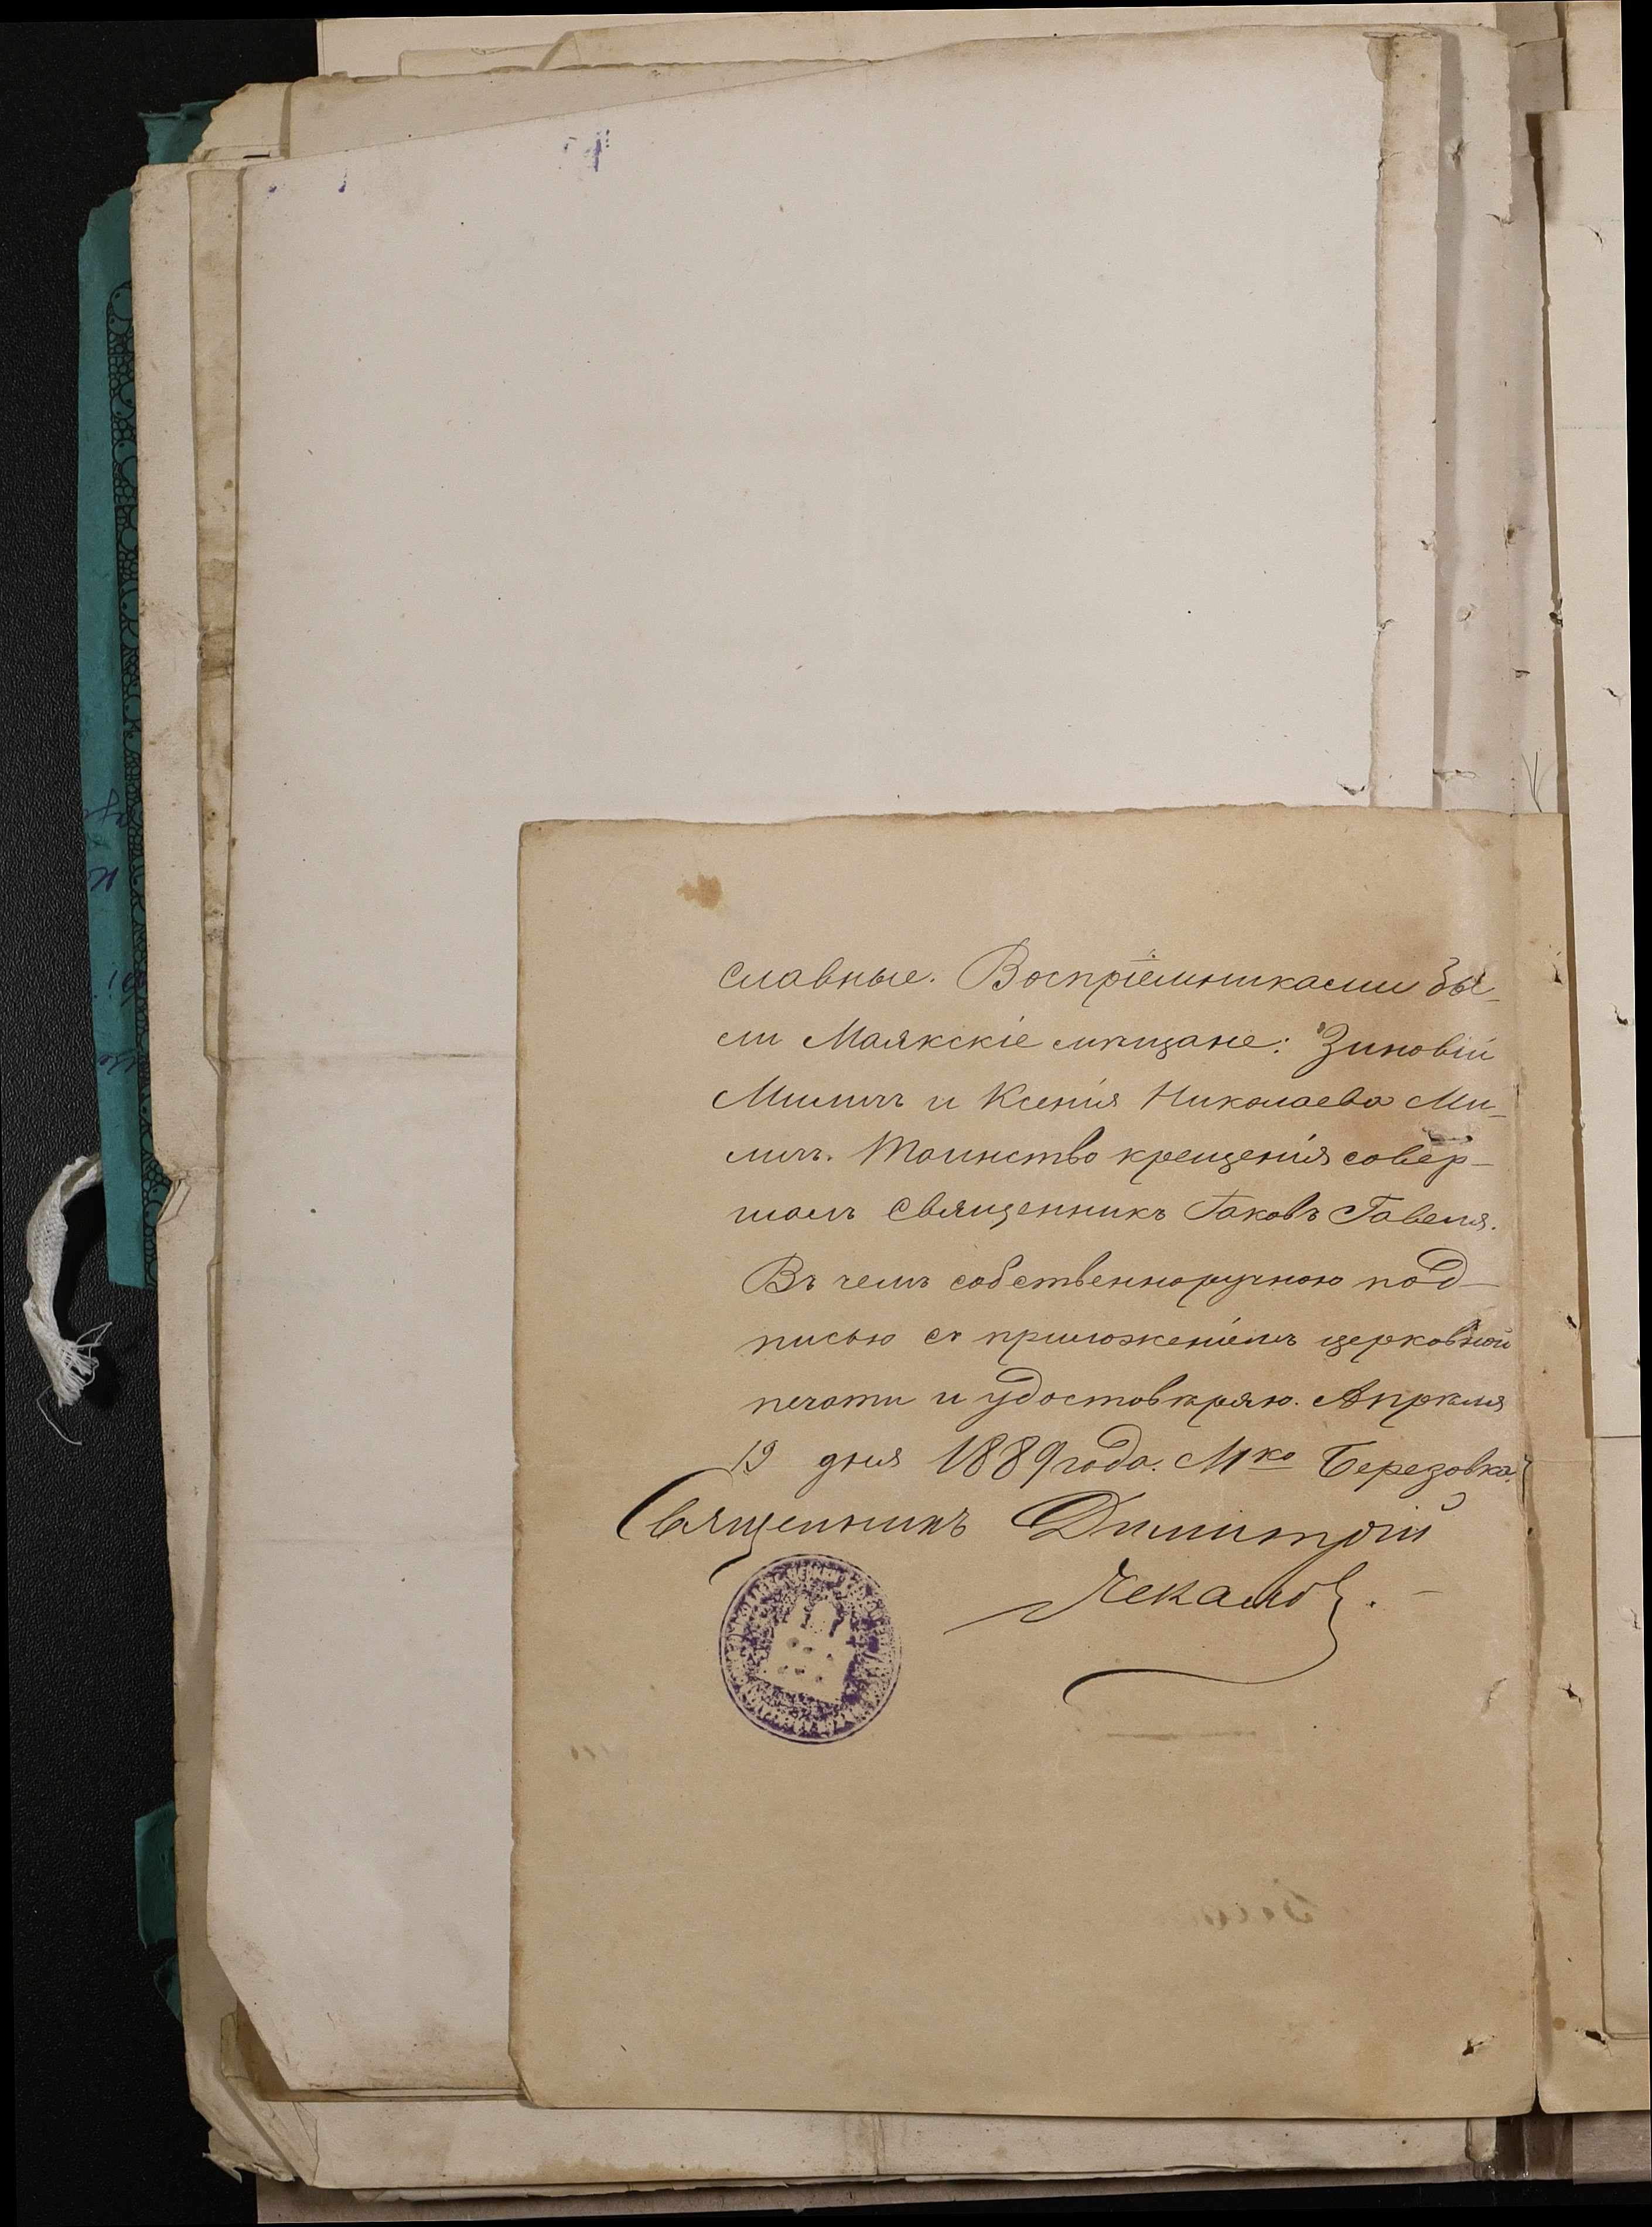 славные. Воспріемниками бы-
ли Маякскіе мѣщане: Зиновій
Милич и Ксенія Николаева Ми-
лич. Таинство крещенія совер-
шалъ Священникъ Іаковъ Гавеля.
Въ чемъ собственноручною под-
писью съ приложеніемъ церковной
печати и удостовѣряю. Апрѣля
19 дня 1889 года. М-ко Березовка.
Священникъ Димитрій
Чекановъ.